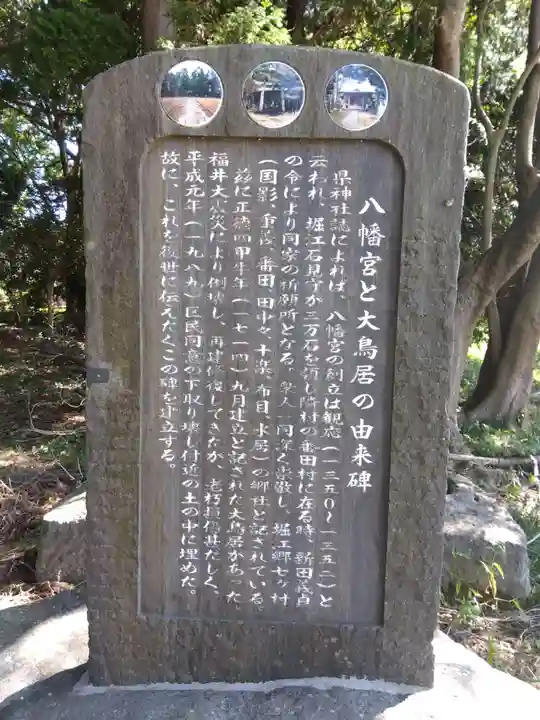 八幡宮と大鳥居の由来碑
県神社誌によれば、八幡宮の創立は観応(一三五〇〜一三五二)と
云われ、堀江石見守が三万石を領し隣村の番田村に在る時、新田義貞
の令により同家の祈願所となる。里人一同深く崇敬し、堀江郷七ヶ村
(国影、重義、番田、田中々、十楽、布目、水居)の郷社と記されている。
茲に正徳四甲午年(一七一四)九月建立と記された大鳥居があった
福井大震災により倒壊し、再建修復してきたが、老朽損傷甚だしく、
平成元年(一九八九)区民同意の下取り壊し付近の土の中に埋めた。
故に、これを後世に伝えたくこの碑を建立する。